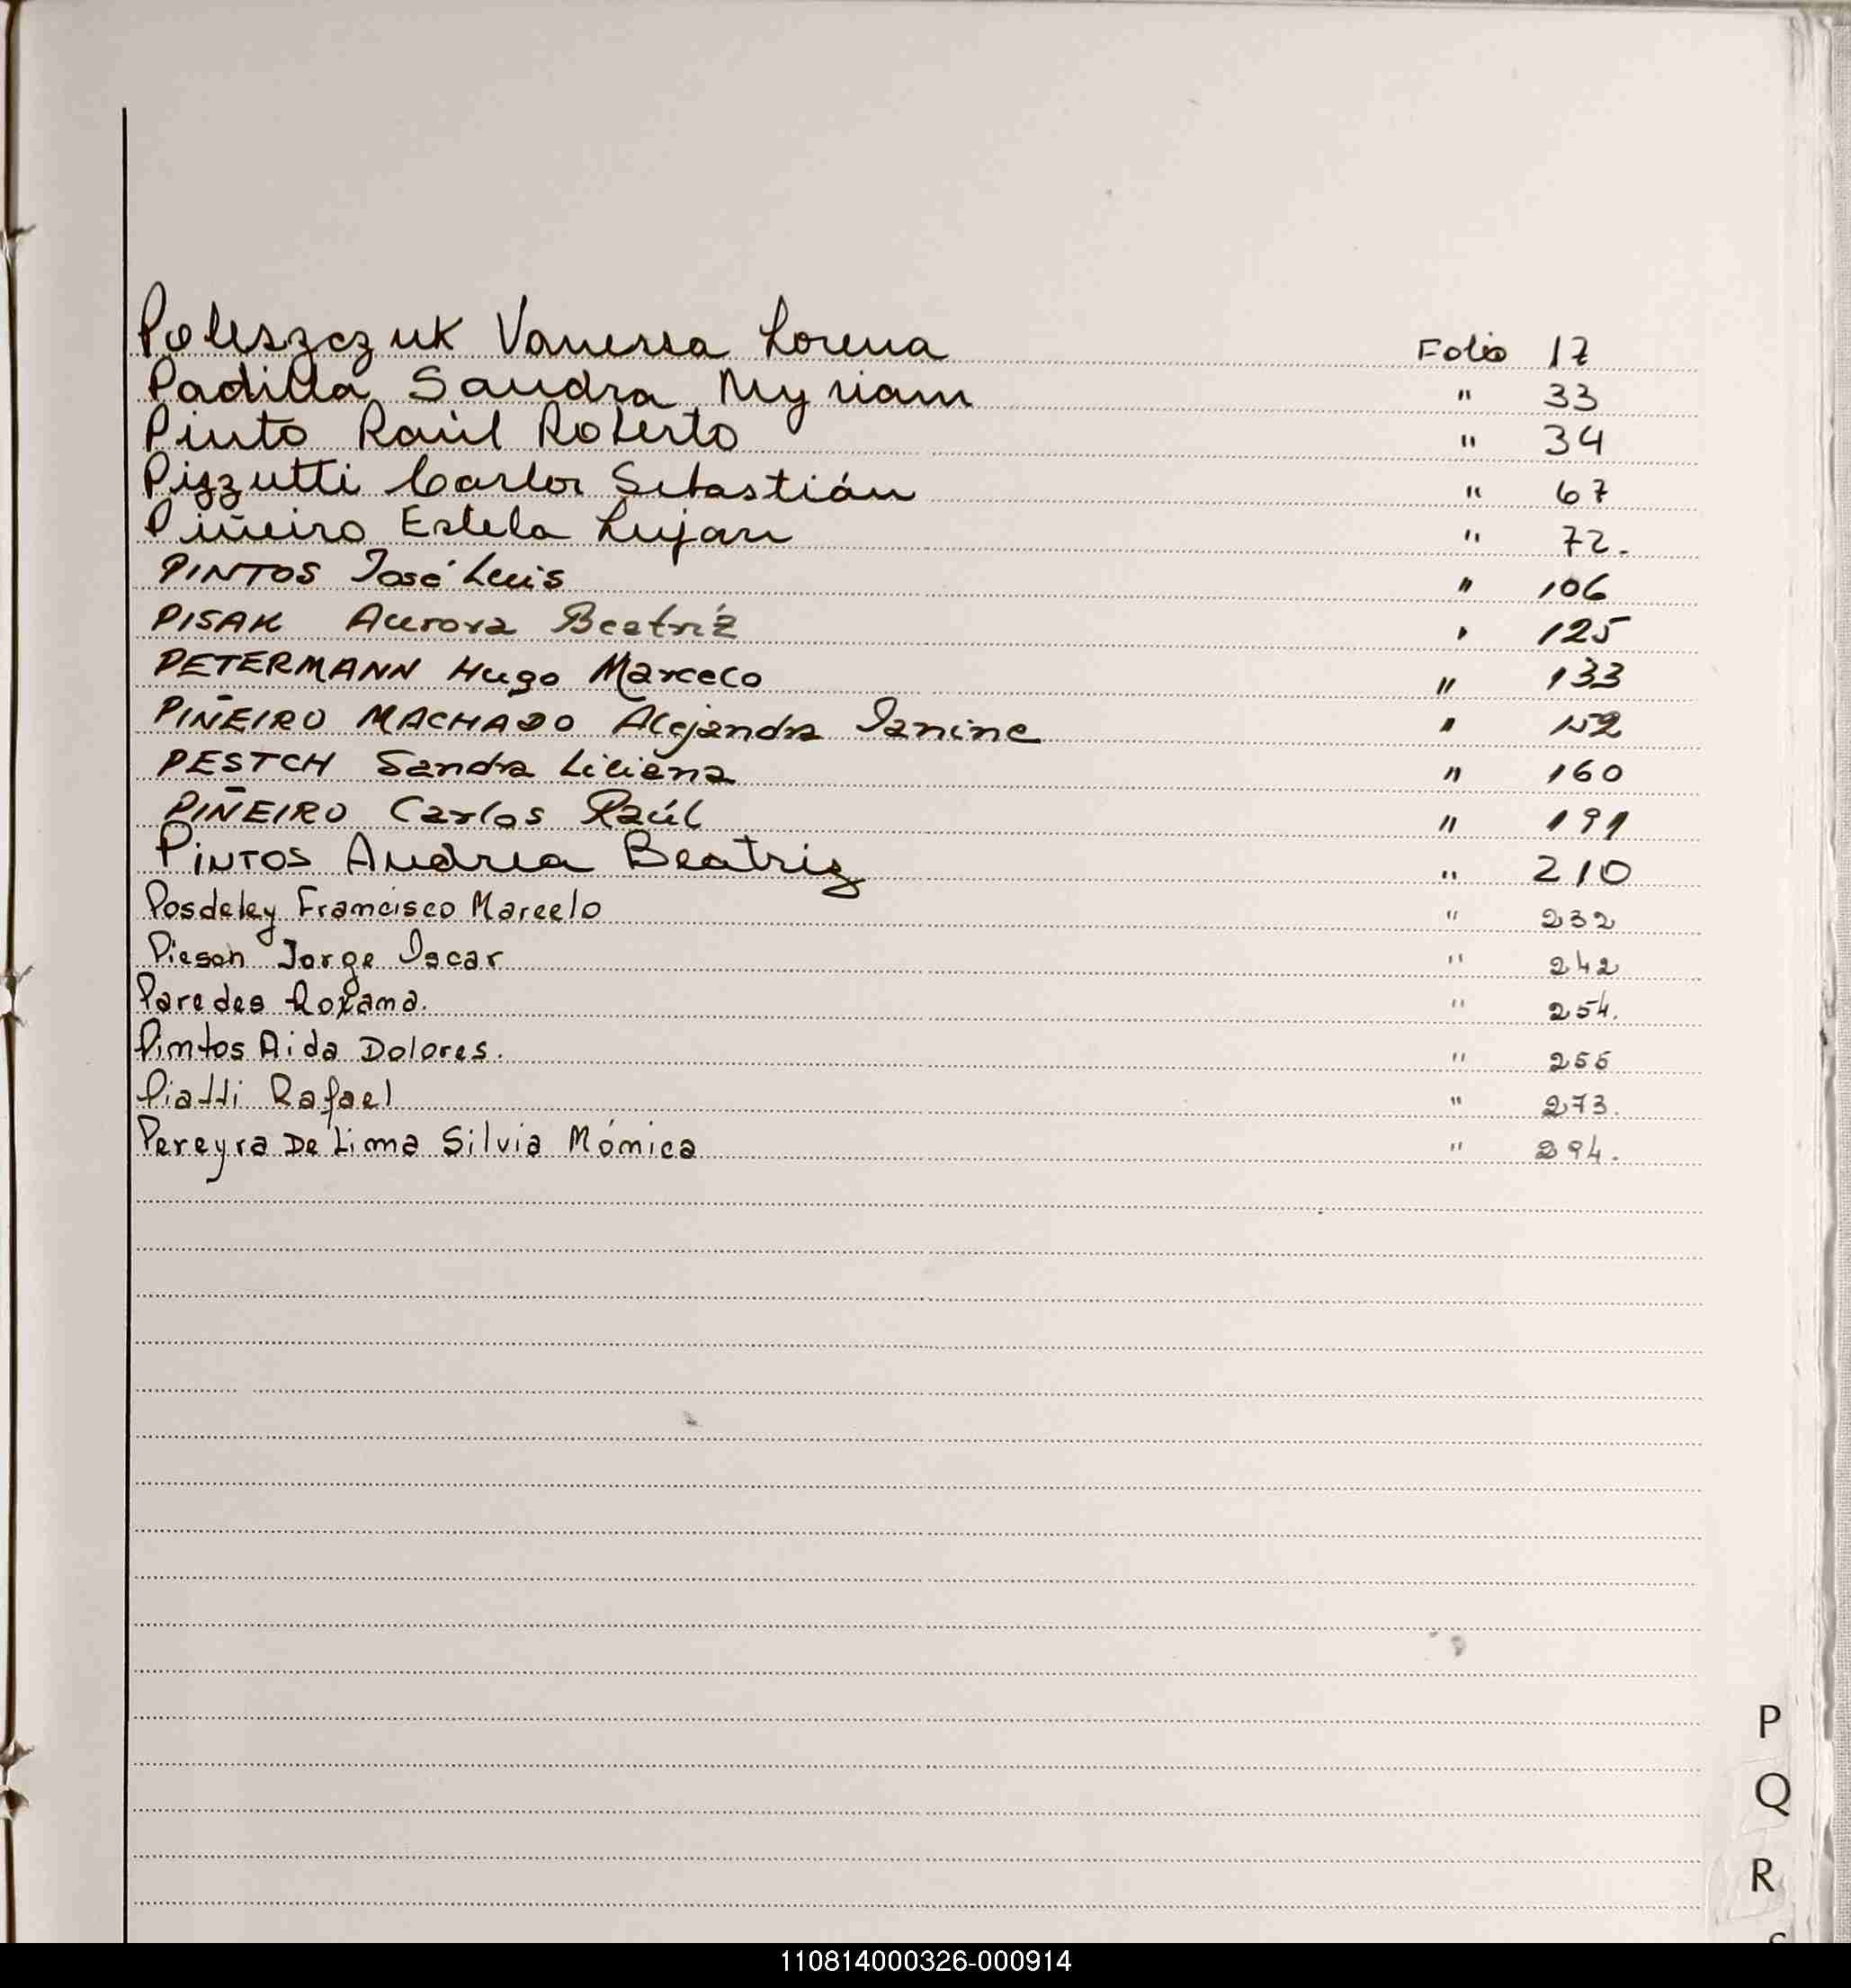 Poleszczuk Vanessa Lorena Folio 17
Padilla Sandra Myriam " 33
Pinto Raúl Roberto " 34
Pizzutti Carlos Sebastián " 67
Piñeiro Estela Lujan " 72.
PINTOS José Luis " 106
PISAK Aurora Beatríz " 125
PETERMANN Hugo Marcelo " 133
PIÑEIRO MACHADO Alejandra Janine " 152
PESTCH Sandra Liliana " 160
PIÑEIRO Carlos Raúl " 191
PINTOS Andrea Beatriz " 210
Posdeley Francisco Marcelo " 232
Pieson Jorge Oscar " 242
Paredes Roxana. " 254.
Pintos Aida Dolores. " 255
Piatti Rafael " 273.
Pereyra De Lima Silvia Mónica " 294.
P
Q
R
110814000326-000914